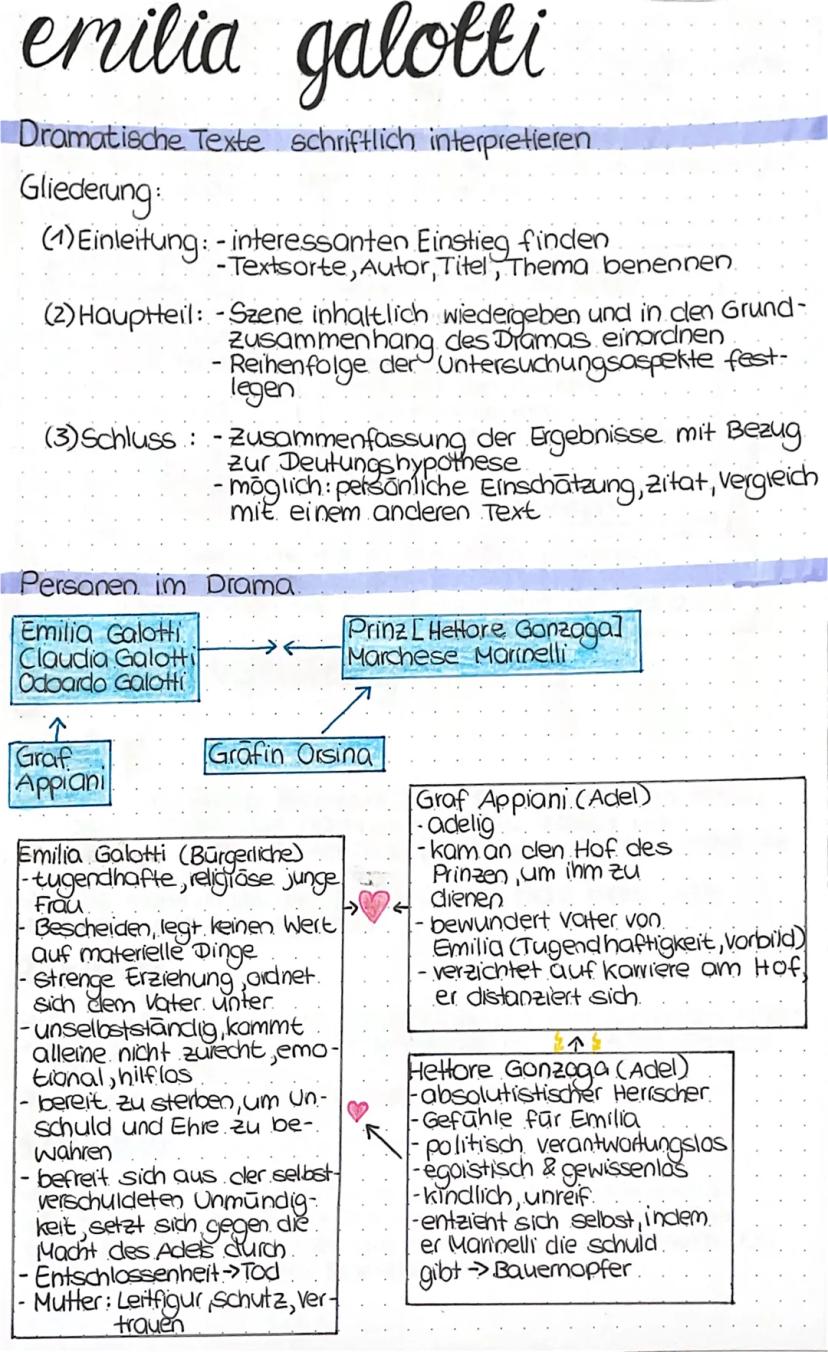 emilia galotti
Dramatische Texte schriftlich interpretieren
Gliederung:
(1) Einleitung: - interessanten Einstieg finden
- Textsorte, Autor, Titel, Thema benennen
(2) Hauptteil: - Szene inhaltlich wiedergeben und in den Grund-
zusammenhang des Dramas einordnen
- Reihenfolge der Untersuchungsaspekte fest-
legen
(3) Schluss : - Zusammenfassung der Ergebnisse mit Bezug
zur Deutungshypothese
- möglich: persönliche Einschätzung, Zitat, Vergleich
mit einem anderen Text
Personen im Drama
Emilia Galotti
Claudia Galotti
Odoardo Galotti
Prinz [Hettore Gonzaga]
Marchese Marinelli
Graf
Appiani
Gräfin Orsina
Emilia Galotti (Bürgerliche)
- tugendhafte, religiöse junge
Frau
- Bescheiden, legt keinen Wert
auf materielle Dinge
- strenge Erziehung, ordnet
sich dem Vater unter
- unselbstständig, kommt
alleine nicht zurecht, emo-
tional, hilflos
- bereit zu sterben, um Un-
schuld und Ehre zu be-
wahren
- befreit sich aus der selbst-
verschuldeten Unmündig-
keit, setzt sich gegen die
Macht des Adels durch
- Entschlossenheit → Tod
- Mutter: Leitfigur, Schutz, Ver-
trauen
Graf Appiani (Adel)
- adelig
- kam an den Hof des
Prinzen, um ihm zu
dienen
- bewundert Vater von
Emilia (Tugendhaftigkeit, Vorbild)
- verzichtet auf Karriere am Hof,
er distanziert sich
Hettore Gonzaga (Adel)
- absolutistischer Herrscher
- Gefühle für Emilia
- politisch verantwortungslos
- egoistisch & gewissenlos
- kindlich, unreif
- entzieht sich selbst, indem
er Marinelli die schuld
gibt → Bauernopfer